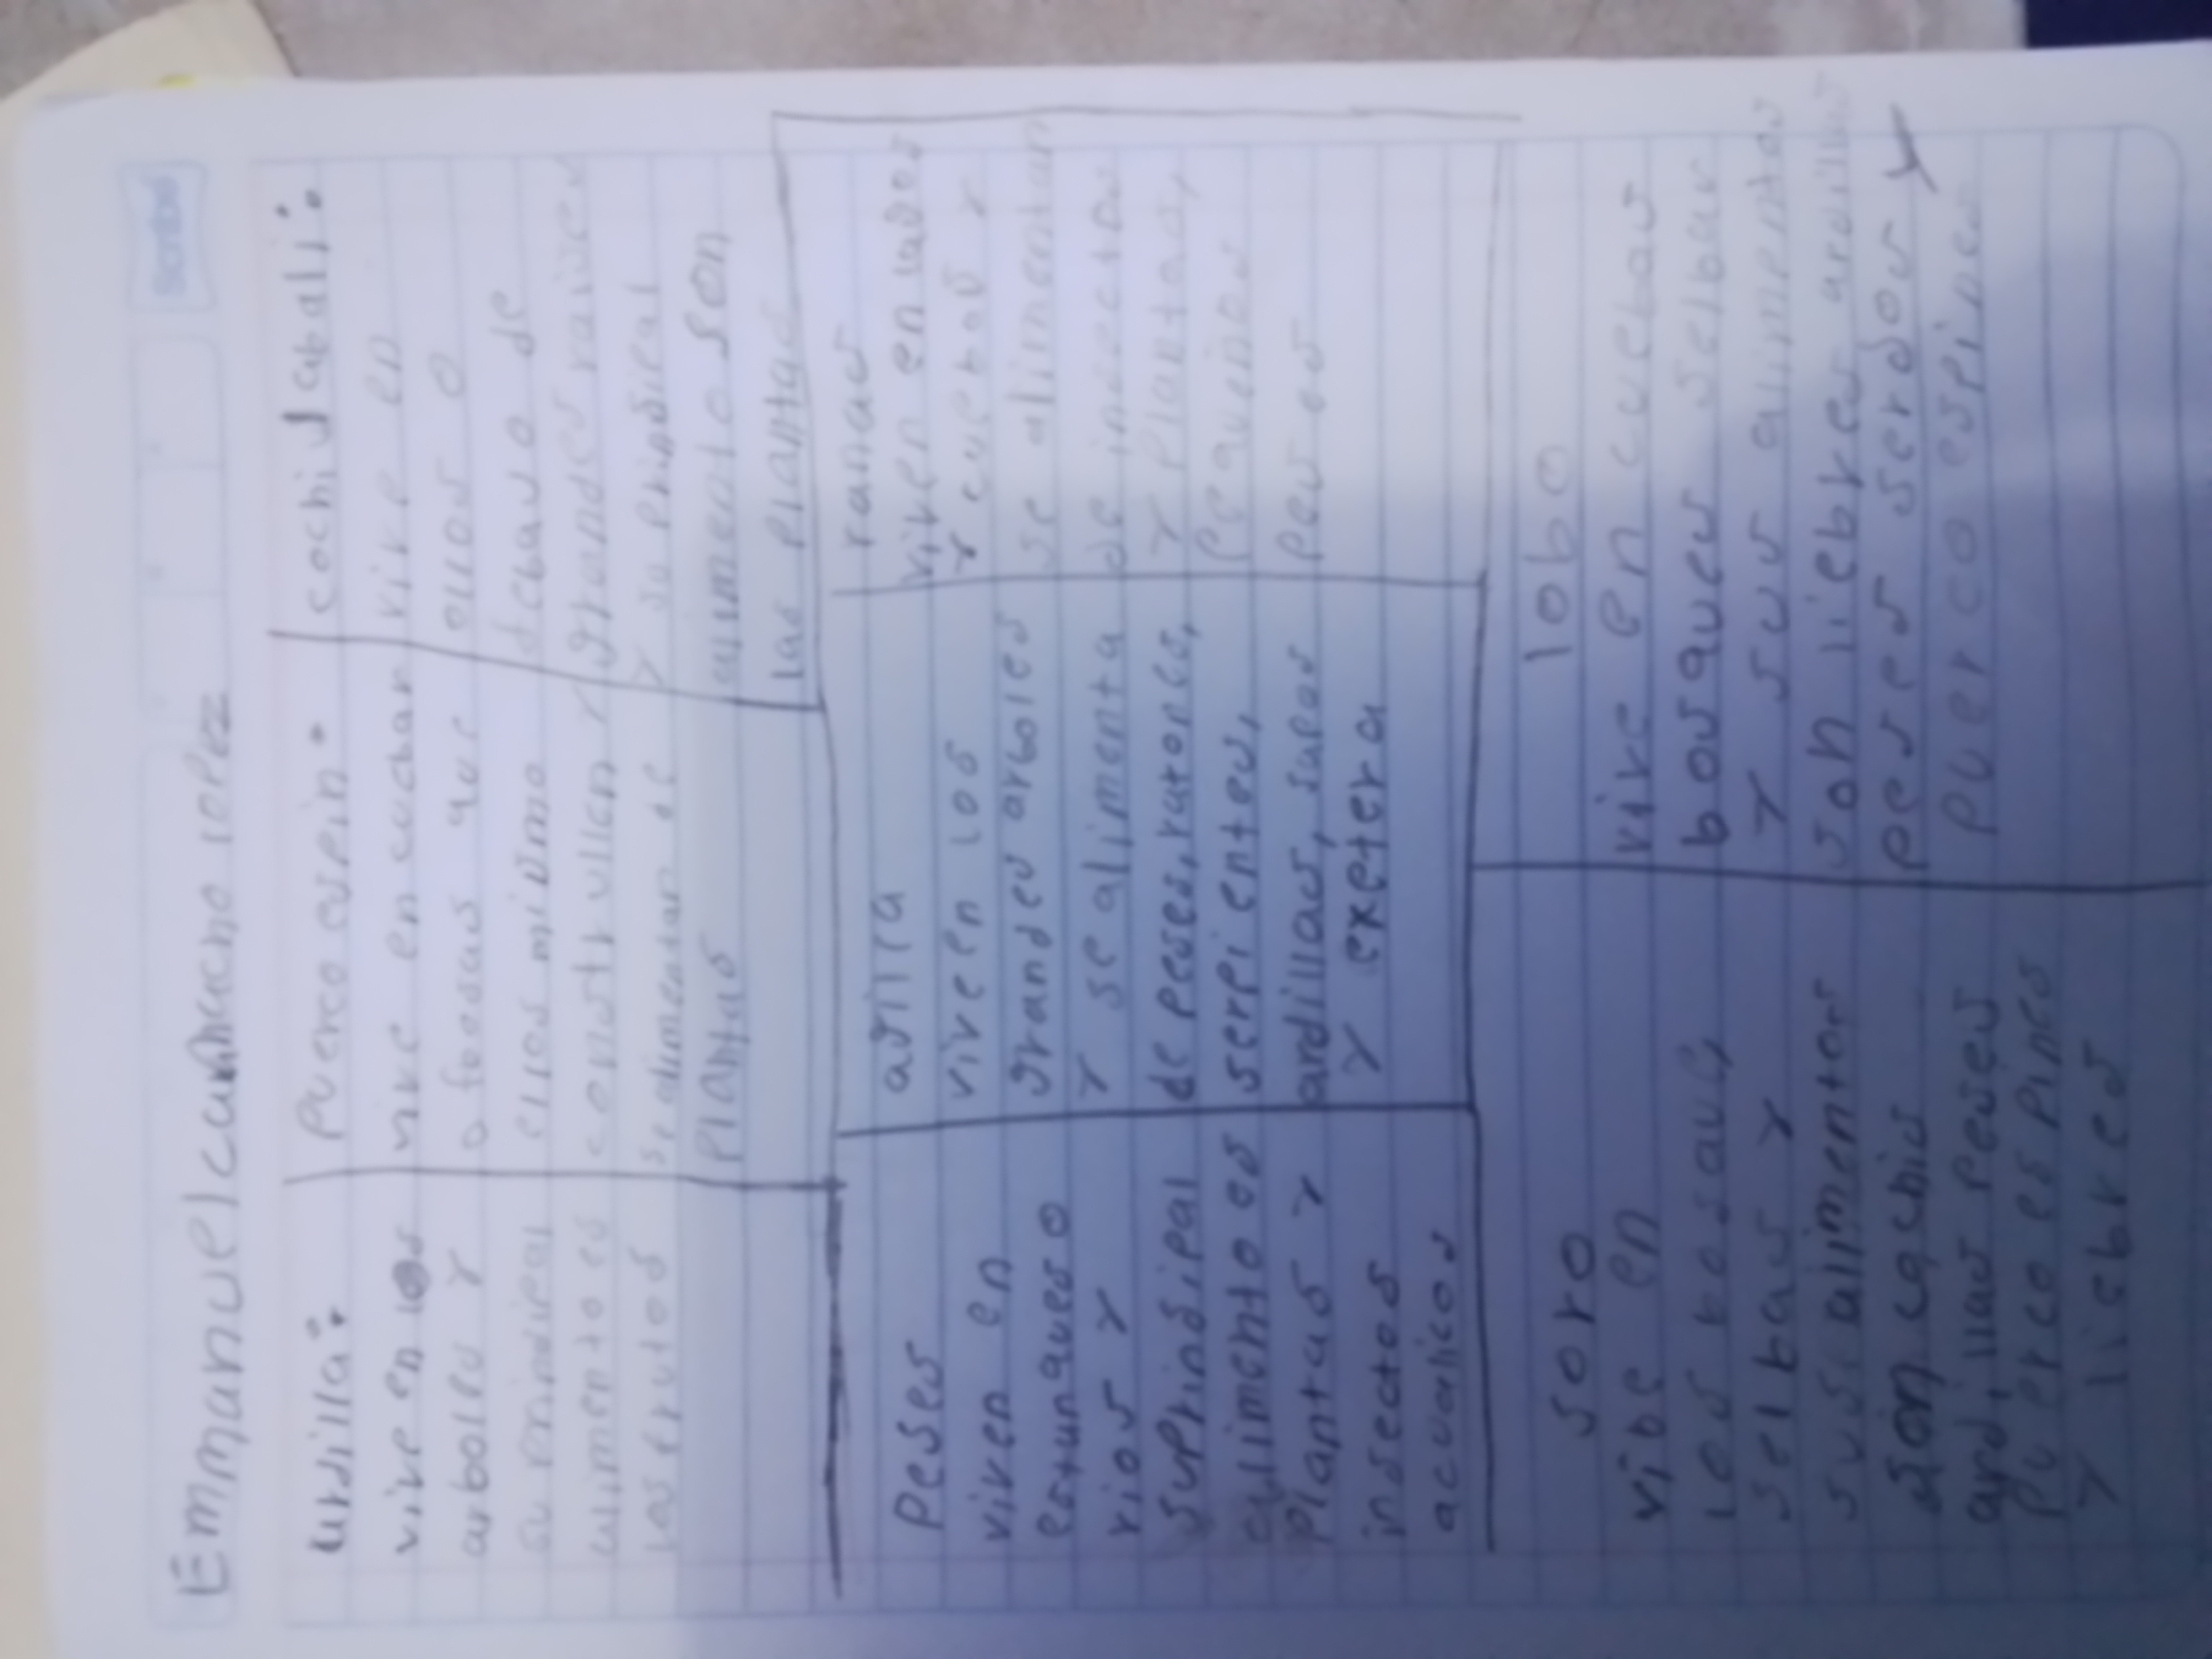 Scribe
Emmanuel camacho lopez
ardilla:
vive en los
arboles y
su prindipal
alimento es
las frutos
puerco espin.
vive en cuchar
o fosas que
ellos mismo
construllen y
se alimentan de
plantas
cochi Jabali:
vive en
ollos o
debajo de
grandes raises
y so prinsipal
alimento son
las plantas
peses
viven en
estanques o
rios y
su prinsipal
alimento es
plantas y
insectos
acuaticos
agila
viven los
grandes arboles
y se alimenta
de peses, ratones,
serpientes,
ardillas, sapos
y exetera
ranas
viven en lagos
y
se alimentan
de insectos
y plantas,
pequeños
peses
soro
vibe en
los
selbas y
sus alimentos
son
ardillas peses
puerco espines
y liebres
lobo
vive en cuebas
bosques selbas
y sus alimentos
son liebres ardillas
peses serdos y
puerco espines